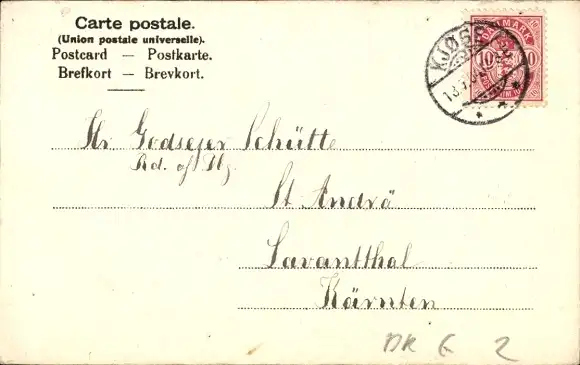 Carte postale.
(Union postale universelle).
Postcard — Postkarte.
Brefkort — Brevkort.
DANMARK
10 10
KJØGE
Hr. Godsejer Schütte
Rd. af Dbg.
St. Andrä
Lavantthal
Kärnten
DK G 2